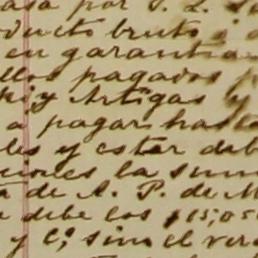 asa por S. L.
oducto bruto
en garantia
ellos pagados
ki y Artigas y
a pagar has
les y estar deb
ciones la sum
ta de A. P. de M
a debe los $15,05
y Cº, sino el ver